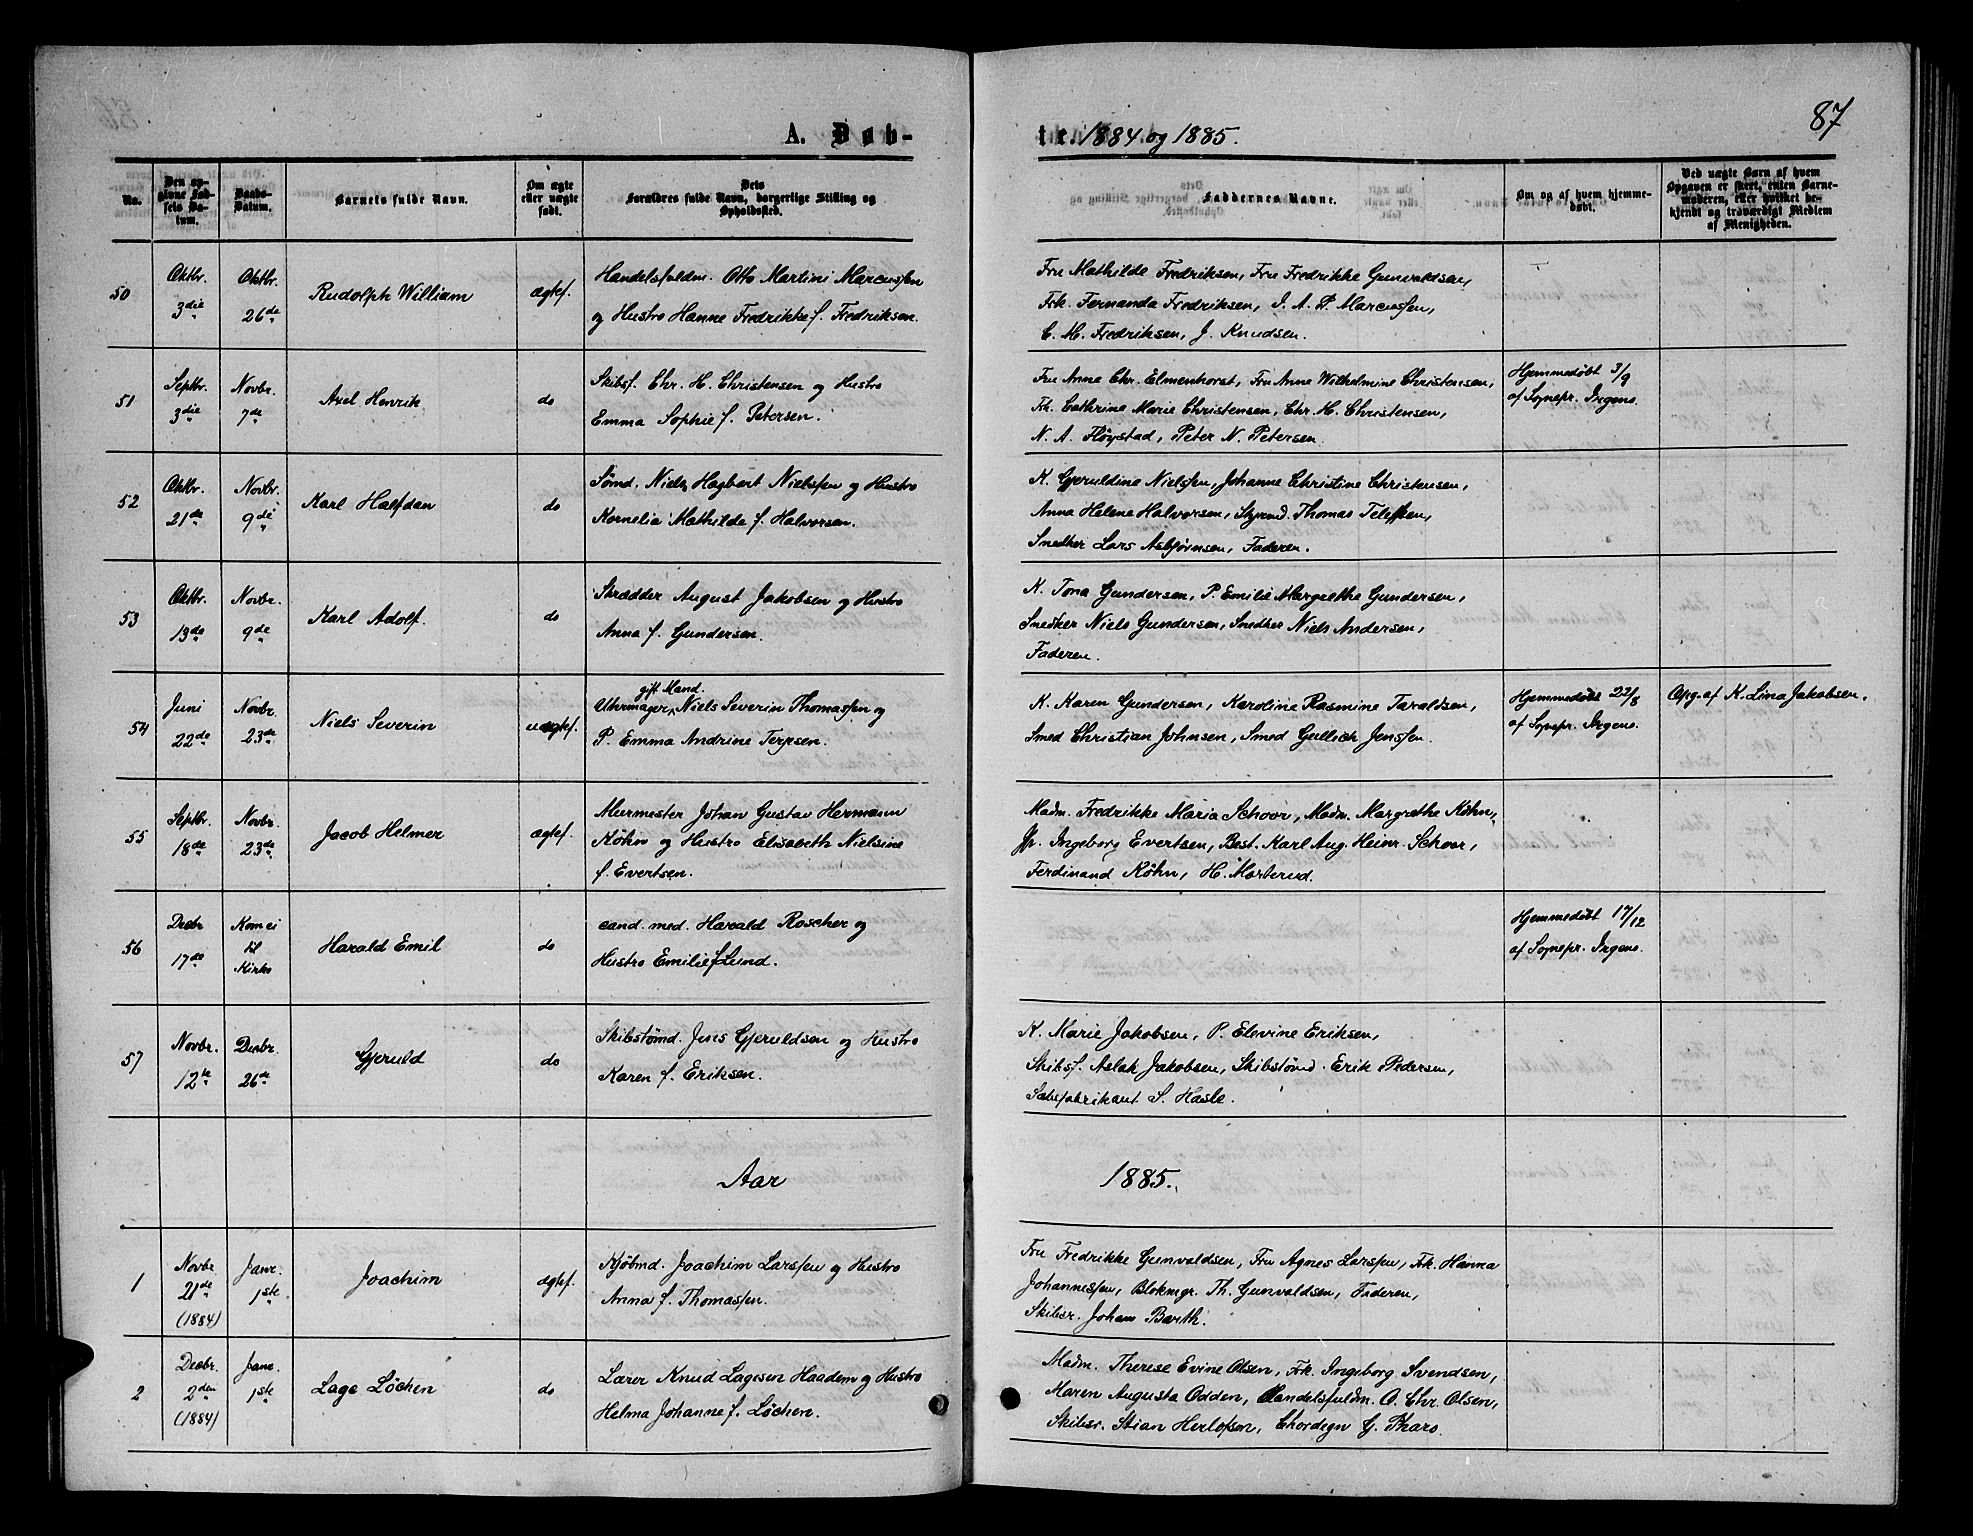 87
A. Døb-
te. 1884 og 1885.
No.
Den op-
givne Fød-
sels Da-
tum.
Daabs-
Datum.
Barnets fulde Navn.
Om ægte
eller uægte
født.
Dets
Forældres fulde Navn, borgerlige Stilling og
Opholdssted.
Faddernes Navne.
Om og af hvem hjemme-
døbt.
Ved uægte Børn af hvem
Opgaven er skeet, enten Barne-
moderen, eller hvilket be-
kjendt og troværdigt Medlem
af Menigheden.
50
Oktbr.
3die
Oktbr.
26de
Rudolph William
ægtef.
Handelsfuldm. Otto Martini Marcussen
og Hustro Hanne Fredrikke f. Fredriksen.
Fru Mathilde Fredriksen, Fru Fredrikke Gunvaldsen,
Frk. Fernanda Fredriksen, I. A. P. Marcussen,
C. M. Fredriksen, J. Knudsen.
51
Septbr.
3die
Novbr.
7de
Axel Henrik
do
Skibsf. Chr. H. Christensen og Hustro
Emma Sophie f. Petersen.
Fru Anna Chr. Elmenhorst, Fru Anne Wilhelmine Christensen,
Frk. Cathrine Marie Christensen, Chr. H. Christensen,
N. A. Fløystad, Peter N. Petersen.
Hjemmedøbt 3/9
af Sognepr. Irgens.
52
Oktbr.
21de
Novbr.
9de
Karl Halfdan
do
Sømd. Niels Hagbert Nielssen og Hustro
Kornelia Mathilde f. Halvorsen.
K. Gjeruldine Nielssen, Johanne Christine Christensen,
Anna Helene Halvorsen, Styrmd. Thomas Telefsen,
Snedker Lars Asbjørnsen, Faderen.
53
Oktbr.
13de
Novbr.
9de
Karl Adolf.
do
Skrædder August Jakobsen og Hustro
Anna f. Gundersen.
K. Tona Gundersen, P. Emilie Margrethe Gundersen,
Snedker Niels Gundersen, Snedker Niels Andersen,
Faderen.
54
Juni
22de
Novbr.
23de
Niels Severin
uægtef.
gift Mand.
Uhrmager, Niels Severin Thomassen og
P. Emma Andrine Terjesen.
K. Karen Gundersen, Karoline Rasmine Taraldsen,
Smed Christian Johnsen, Smed Gullich Jenssen.
Hjemmedøbt 22/8
af Sognepr. Irgens.
Opg. af K. Lina Jakobsen.
55
Septbr.
18de
Novbr.
23de
Jacob Helmer
ægtef.
Muurmester Johan Gustav Hermann
Köhn og Hustro Elisabeth Nielsine
f. Evertsen.
Madm. Fredrikke Maria Schoor, Madm. Margrethe Köhn,
Jfr. Ingeborg Evertsen, Best. Karl Aug. Heinr. Schoor,
Ferdinand Köhn, H. Marterud.
56
Decbr
17de
Kom ei
til
Kirke
Harald Emil
do
cand. med. Harald Roscher og
Hustro Emilie f. Lund.
Hjemmedøbt 17/12
af Sognepr. Irgens.
57
Novbr.
12te
Decbr.
26de
Gjeruld
do
Skibstømd. Jens Gjeruldsen og Hustro
Karen f. Eriksen.
K. Marie Jakobsen, P. Elevine Eriksen,
Skibsf. Aslak Jakobsen, Skibstømd. Erik Pedersen,
Sæbefabrikant S. Hasle.
Aar
1885.
1
Novbr.
21de
(1884)
Janr.
1ste
Joachim
ægtef.
Kjöbmd. Joachim Larssen og Hustro
Anna f. Thomassen.
Fru Fredrikke Gunvaldsen, Fru Agnes Larssen, Frk. Hanna
Johannessen, Blokmgr. Th. Gunvaldsen, Faderen,
Skibsr. Johan Barth.
2
Decbr.
2den
(1884)
Janr.
1ste
Lage Löchen
do
Lærer Knud Lagesen Haadem og Hustro
Helma Johanne f. Löchen.
Madm. Therese Evine Olsen, Frk. Ingeborg Svendsen,
Maren Augusta Odden, Handelsfuldm. O. Chr. Olsen,
Skibsr. Stian Herlofsen, Chordegn G. Tharo.